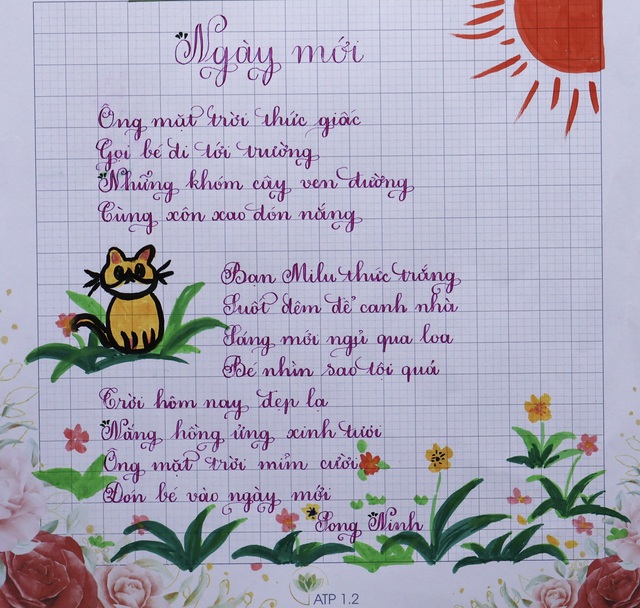 Ngày mới
Ông mặt trời thức giấc
Gọi bé đi tới trường
Những khóm cây ven đường
Cùng xôn xao đón nắng
Bạn Milu thức trắng
Suốt đêm để canh nhà
Sáng mới ngủ qua loa
Bé nhìn sao tội quá
Trời hôm nay đẹp lạ
Nắng hồng ửng xinh tươi
Ông mặt trời mỉm cười
Đón bé vào ngày mới
Song Ninh
ATP 1.2